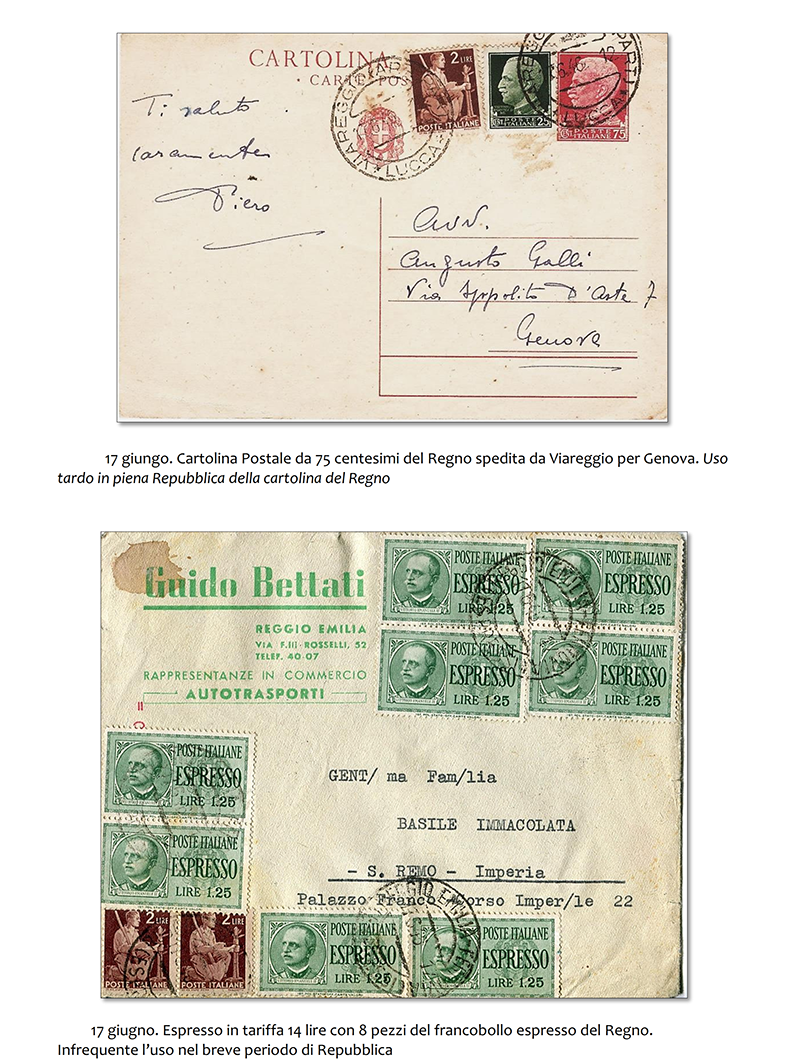 CARTOLINA
CARTE POS
Ti saluto
caramente
Piero
2 LIRE
POSTE ITALIANE
POSTE
ITALIANE
75
VIAREGGIO
LUCCA
Avv.
Augusto Galli
Via Ippolito D'Aste 7
Genova
17 giungo. Cartolina Postale da 75 centesimi del Regno spedita da Viareggio per Genova. Uso
tardo in piena Repubblica della cartolina del Regno
Guido Bettati
REGGIO EMILIA
VIA F.lli ROSSELLI, 52
TELEF. 40-07
RAPPRESENTANZE IN COMMERCIO
AUTOTRASPORTI
POSTE ITALIANE
ESPRESSO
LIRE 1.25
POSTE ITALIANE
ESPRESSO
LIRE 1.25
POSTE ITALIANE
ESPRESSO
LIRE 1.25
POSTE ITALIANE
ESPRESSO
LIRE 1.25
POSTE ITALIANE
ESPRESSO
LIRE 1.25
POSTE ITALIANE
ESPRESSO
LIRE 1.25
GENT/ ma Fam/lia
BASILE IMMACOLATA
- S. REMO - Imperia
Palazzo Franco Corso Imper/le 22
2 LIRE
POSTE ITALIANE
2 LIRE
POSTE ITALIANE
POSTE ITALIANE
ESPRESSO
LIRE 1.25
POSTE ITALIANE
ESPRESSO
LIRE 1.25
REGGIO EMILIA
17
17 giugno. Espresso in tariffa 14 lire con 8 pezzi del francobollo espresso del Regno.
Infrequente l'uso nel breve periodo di Repubblica